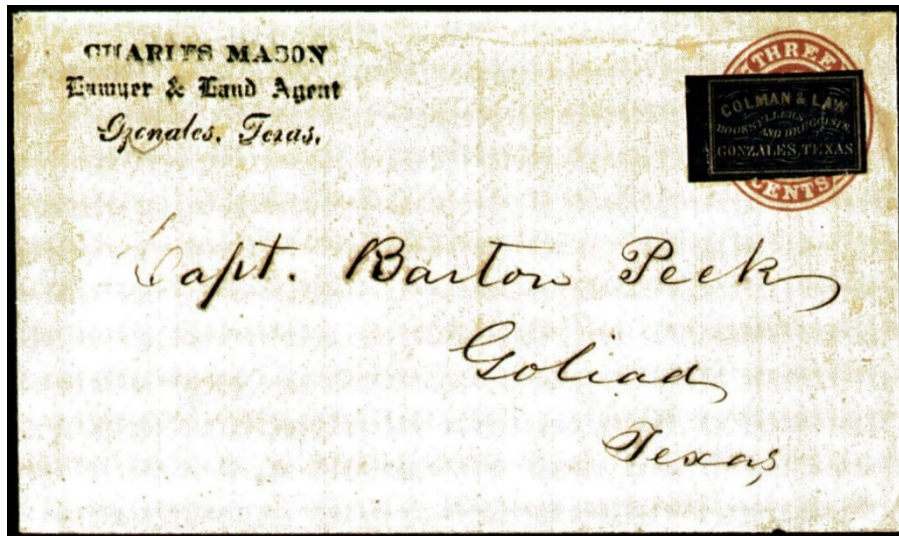 CHARLES MASON
Lawyer & Land Agent
Gonzales, Texas.
THREE
COLMAN & LAW
BOOKSELLERS
AND DRUGGISTS,
GONZALES, TEXAS
CENTS
Capt. Barton Peck
Goliad
Texas,